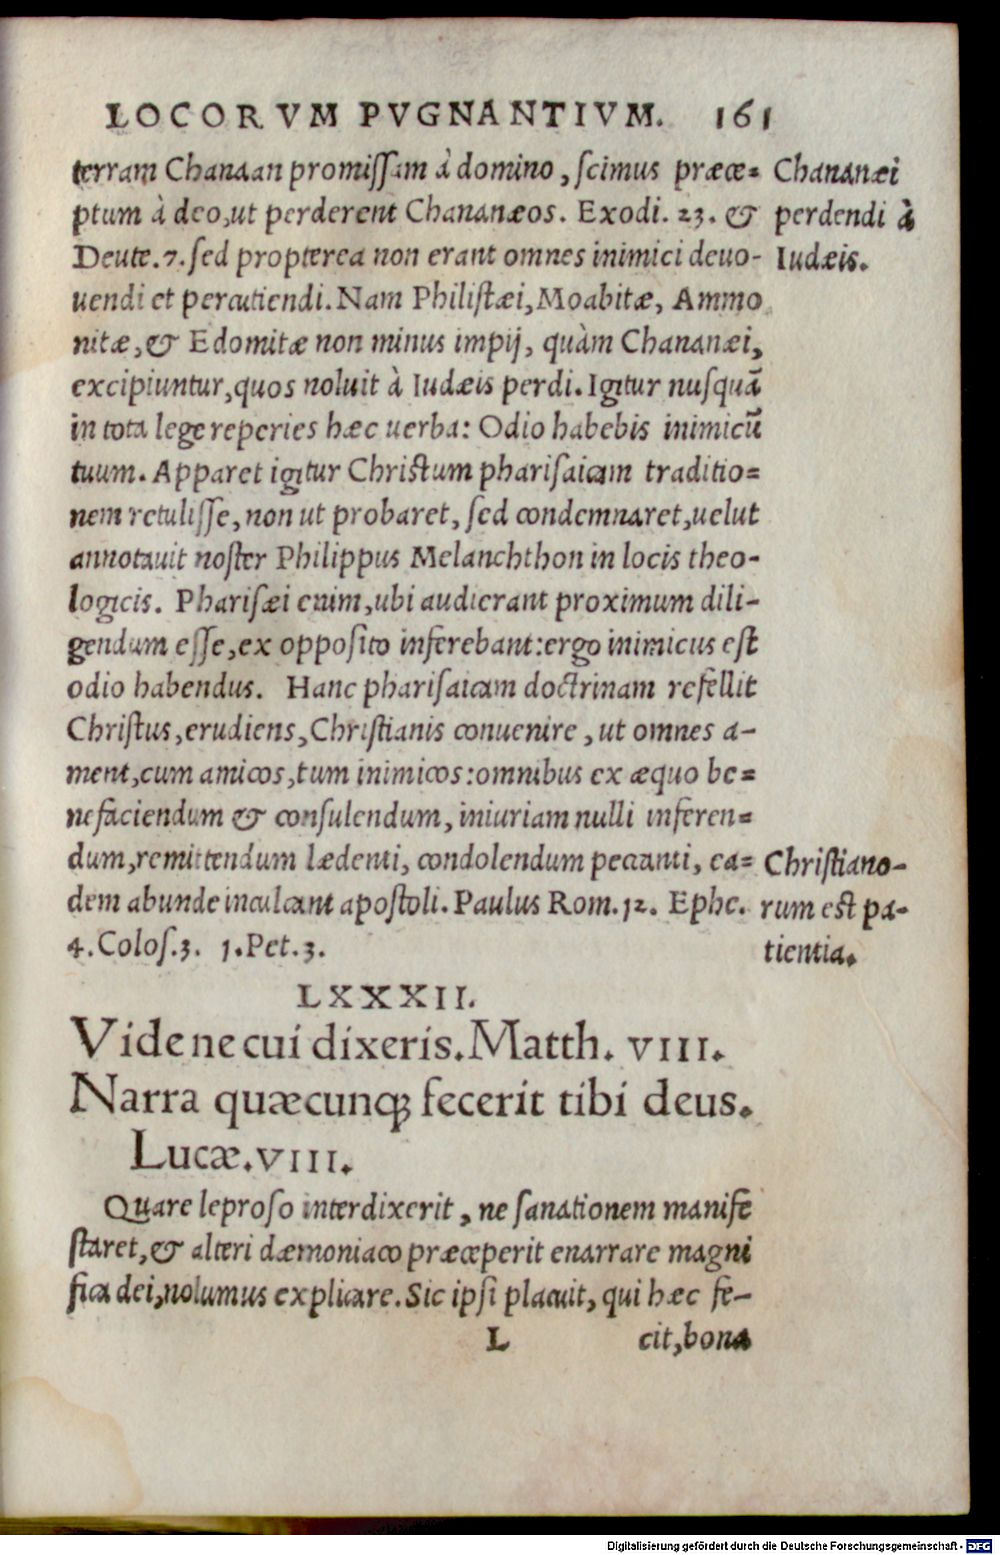 LOCORVM PVGNANTIVM. 161
terram Chanaan promissam à domino, scimus præce=
ptum à deo, ut perderent Chananæos. Exodi. 23. &
Deute. 7. sed propterea non erant omnes inimici deuo-
uendi et percutiendi. Nam Philistæi, Moabitæ, Ammo
nitæ, & Edomitæ non minus impij, quàm Chananæi,
excipiuntur, quos noluit à Iudæis perdi. Igitur nusquā
in tota lege reperies hæc uerba: Odio habebis inimicū
tuum. Apparet igitur Christum pharisaicam traditio=
nem retulisse, non ut probaret, sed condemnaret, uelut
annotauit noster Philippus Melanchthon in locis theo-
logicis. Pharisæi enim, ubi audierant proximum dili-
gendum esse, ex opposito inferebant: ergo inimicus est
odio habendus. Hanc pharisaicam doctrinam refellit
Christus, erudiens, Christianis conuenire, ut omnes a-
ment, cum amicos, tum inimicos: omnibus ex æquo be=
nefaciendum & consulendum, iniuriam nulli inferen=
dum, remittendum lædenti, condolendum peccanti, ea=
dem abunde inculcant apostoli. Paulus Rom. 12. Ephe.
4. Colos. 3. 1. Pet. 3.
Chananæi
perdendi à
Iudæis.
Christiano-
rum est pa-
tientia.
LXXXII.
Vide ne cui dixeris. Matth. VIII.
Narra quæcunq; fecerit tibi deus.
Lucæ. VIII.
Quare leproso interdixerit, ne sanationem manife
staret, & alteri dæmoniaco præceperit enarrare magni
fica dei, nolumus explicare. Sic ipsi placuit, qui hæc fe-
L cit, bona
Digitalisierung gefördert durch die Deutsche Forschungsgemeinschaft - DFG